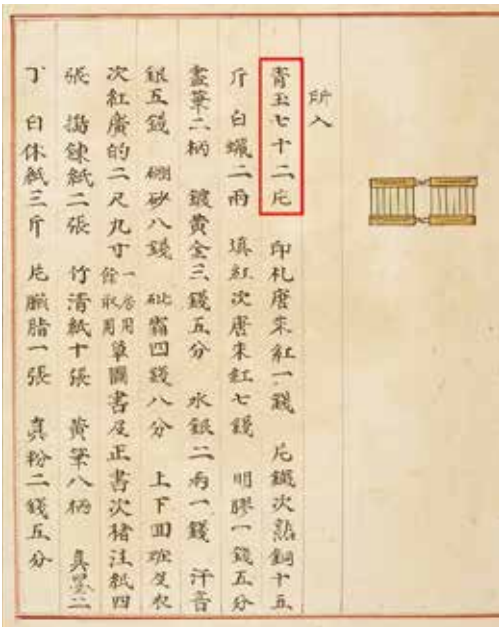 所入
靑玉七十二片 印札唐朱紅一錢 片鐵次熟銅十五
斤 白蠟二兩 塡紅次唐朱紅七錢 明膠一錢五分
畫筆二柄 鍍黃金三錢五分 水銀二兩一錢 汗音
銀五錢 硼砂八錢 砒霜四錢八分 上下回粧及衣
次紅廣的二尺九寸 一套用餘取用 草圖書及正書次楮注紙四
張 搗鍊紙二張 竹淸紙十張 黃筆八柄 眞墨二
丁 白休紙三斤 片臙脂一張 眞粉二錢五分